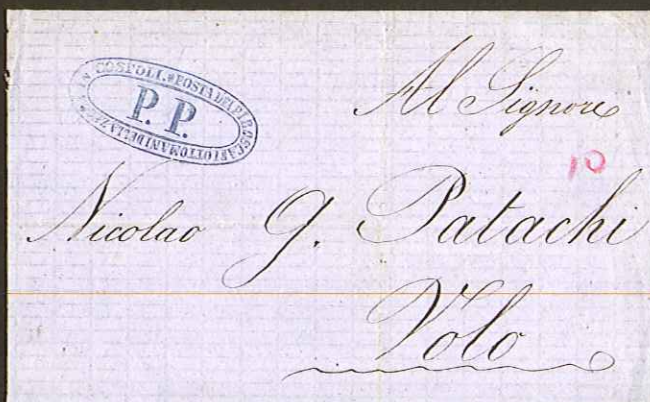 COSPOLI. POSTA DEI PIROSCAFI OTTOMANI DELLA
P. P.
Al Signore
10
Nicolao G. Patachi
Volo